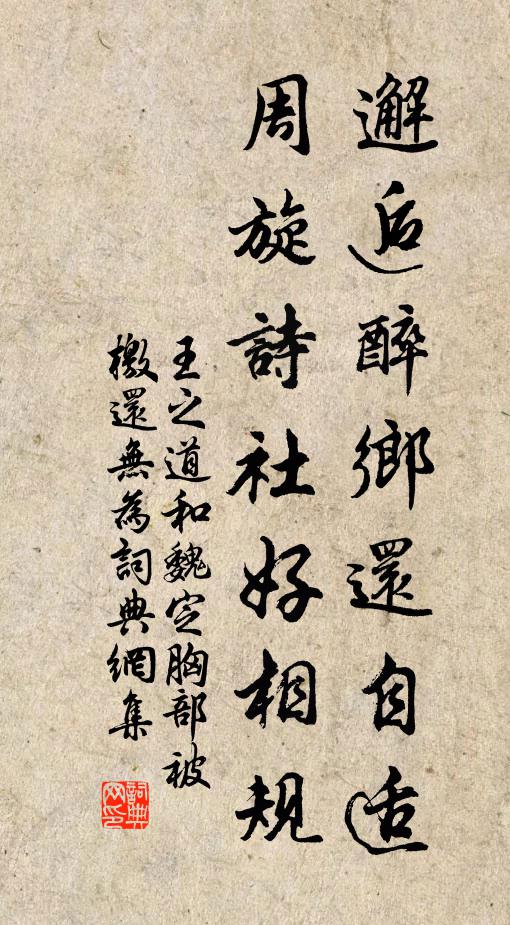 邂逅醉鄉還自适
周旋詩社好相規
王之道和魏定胸部被
檄還無為詞典網集
詞典网印